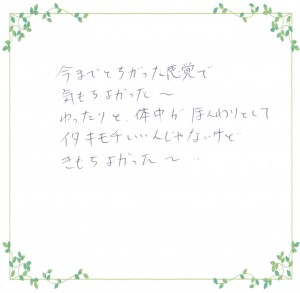 今までとちがった感覚で
気もちよかった〜
ゆったりと、体中が ほんわりとして
イタキモチいいんじゃないけど
きもちよかった〜